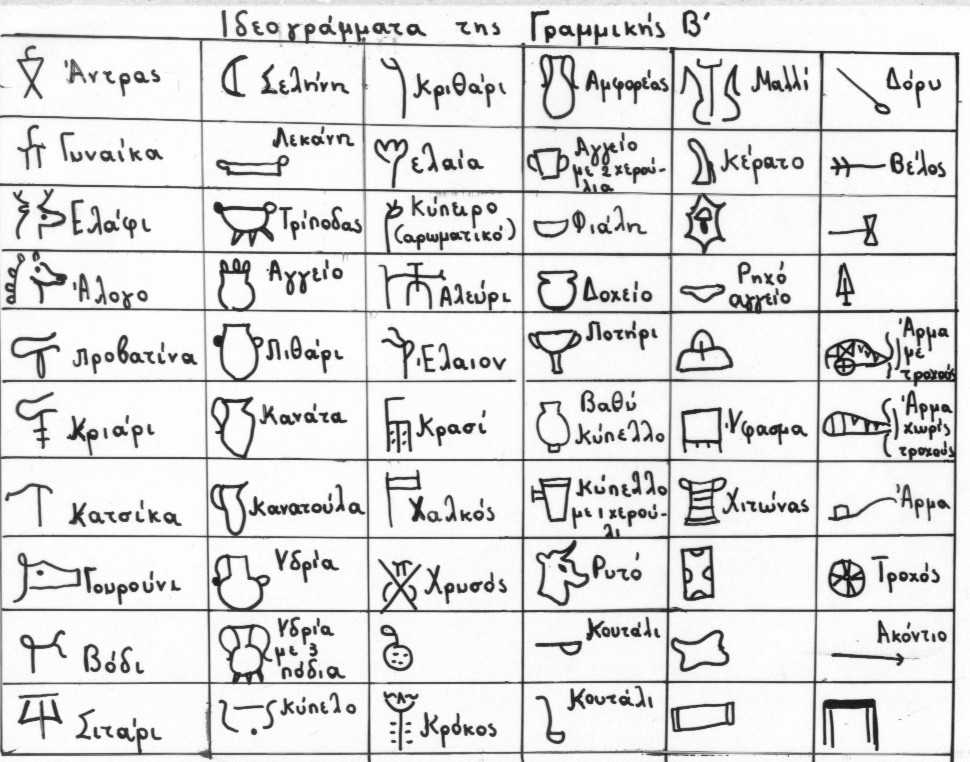 Ιδεογράμματα της Γραμμικής Β΄
Άντρας
Σελήνη
Κριθάρι
Αμφορέας
Μαλλί
Δόρυ
Γυναίκα
Λεκάνη
ελαία
Αγγείο
με 2 χερού-
λια
Κέρατο
Βέλος
Ελάφι
Τρίποδας
Κύπειρο
(αρωματικό)
Φιάλη
Άλογο
Αγγείο
Αλεύρι
Δοχείο
Ρηχό
αγγείο
Προβατίνα
Πιθάρι
Έλαιον
Ποτήρι
Άρμα
με
τροχούς
Κριάρι
Κανάτα
Κρασί
Βαθύ
κύπελλο
Ύφασμα
Άρμα
χωρίς
τροχούς
Κατσίκα
Κανατούλα
Χαλκός
Κύπελλο
με 1 χερού-
λι
Χιτώνας
Άρμα
Γουρούνι
Υδρία
Χρυσός
Ρυτό
Τροχός
Βόδι
Υδρία
με 3
πόδια
Κουτάλι
Ακόντιο
Σιτάρι
κύπελο
Κρόκος
Κουτάλι